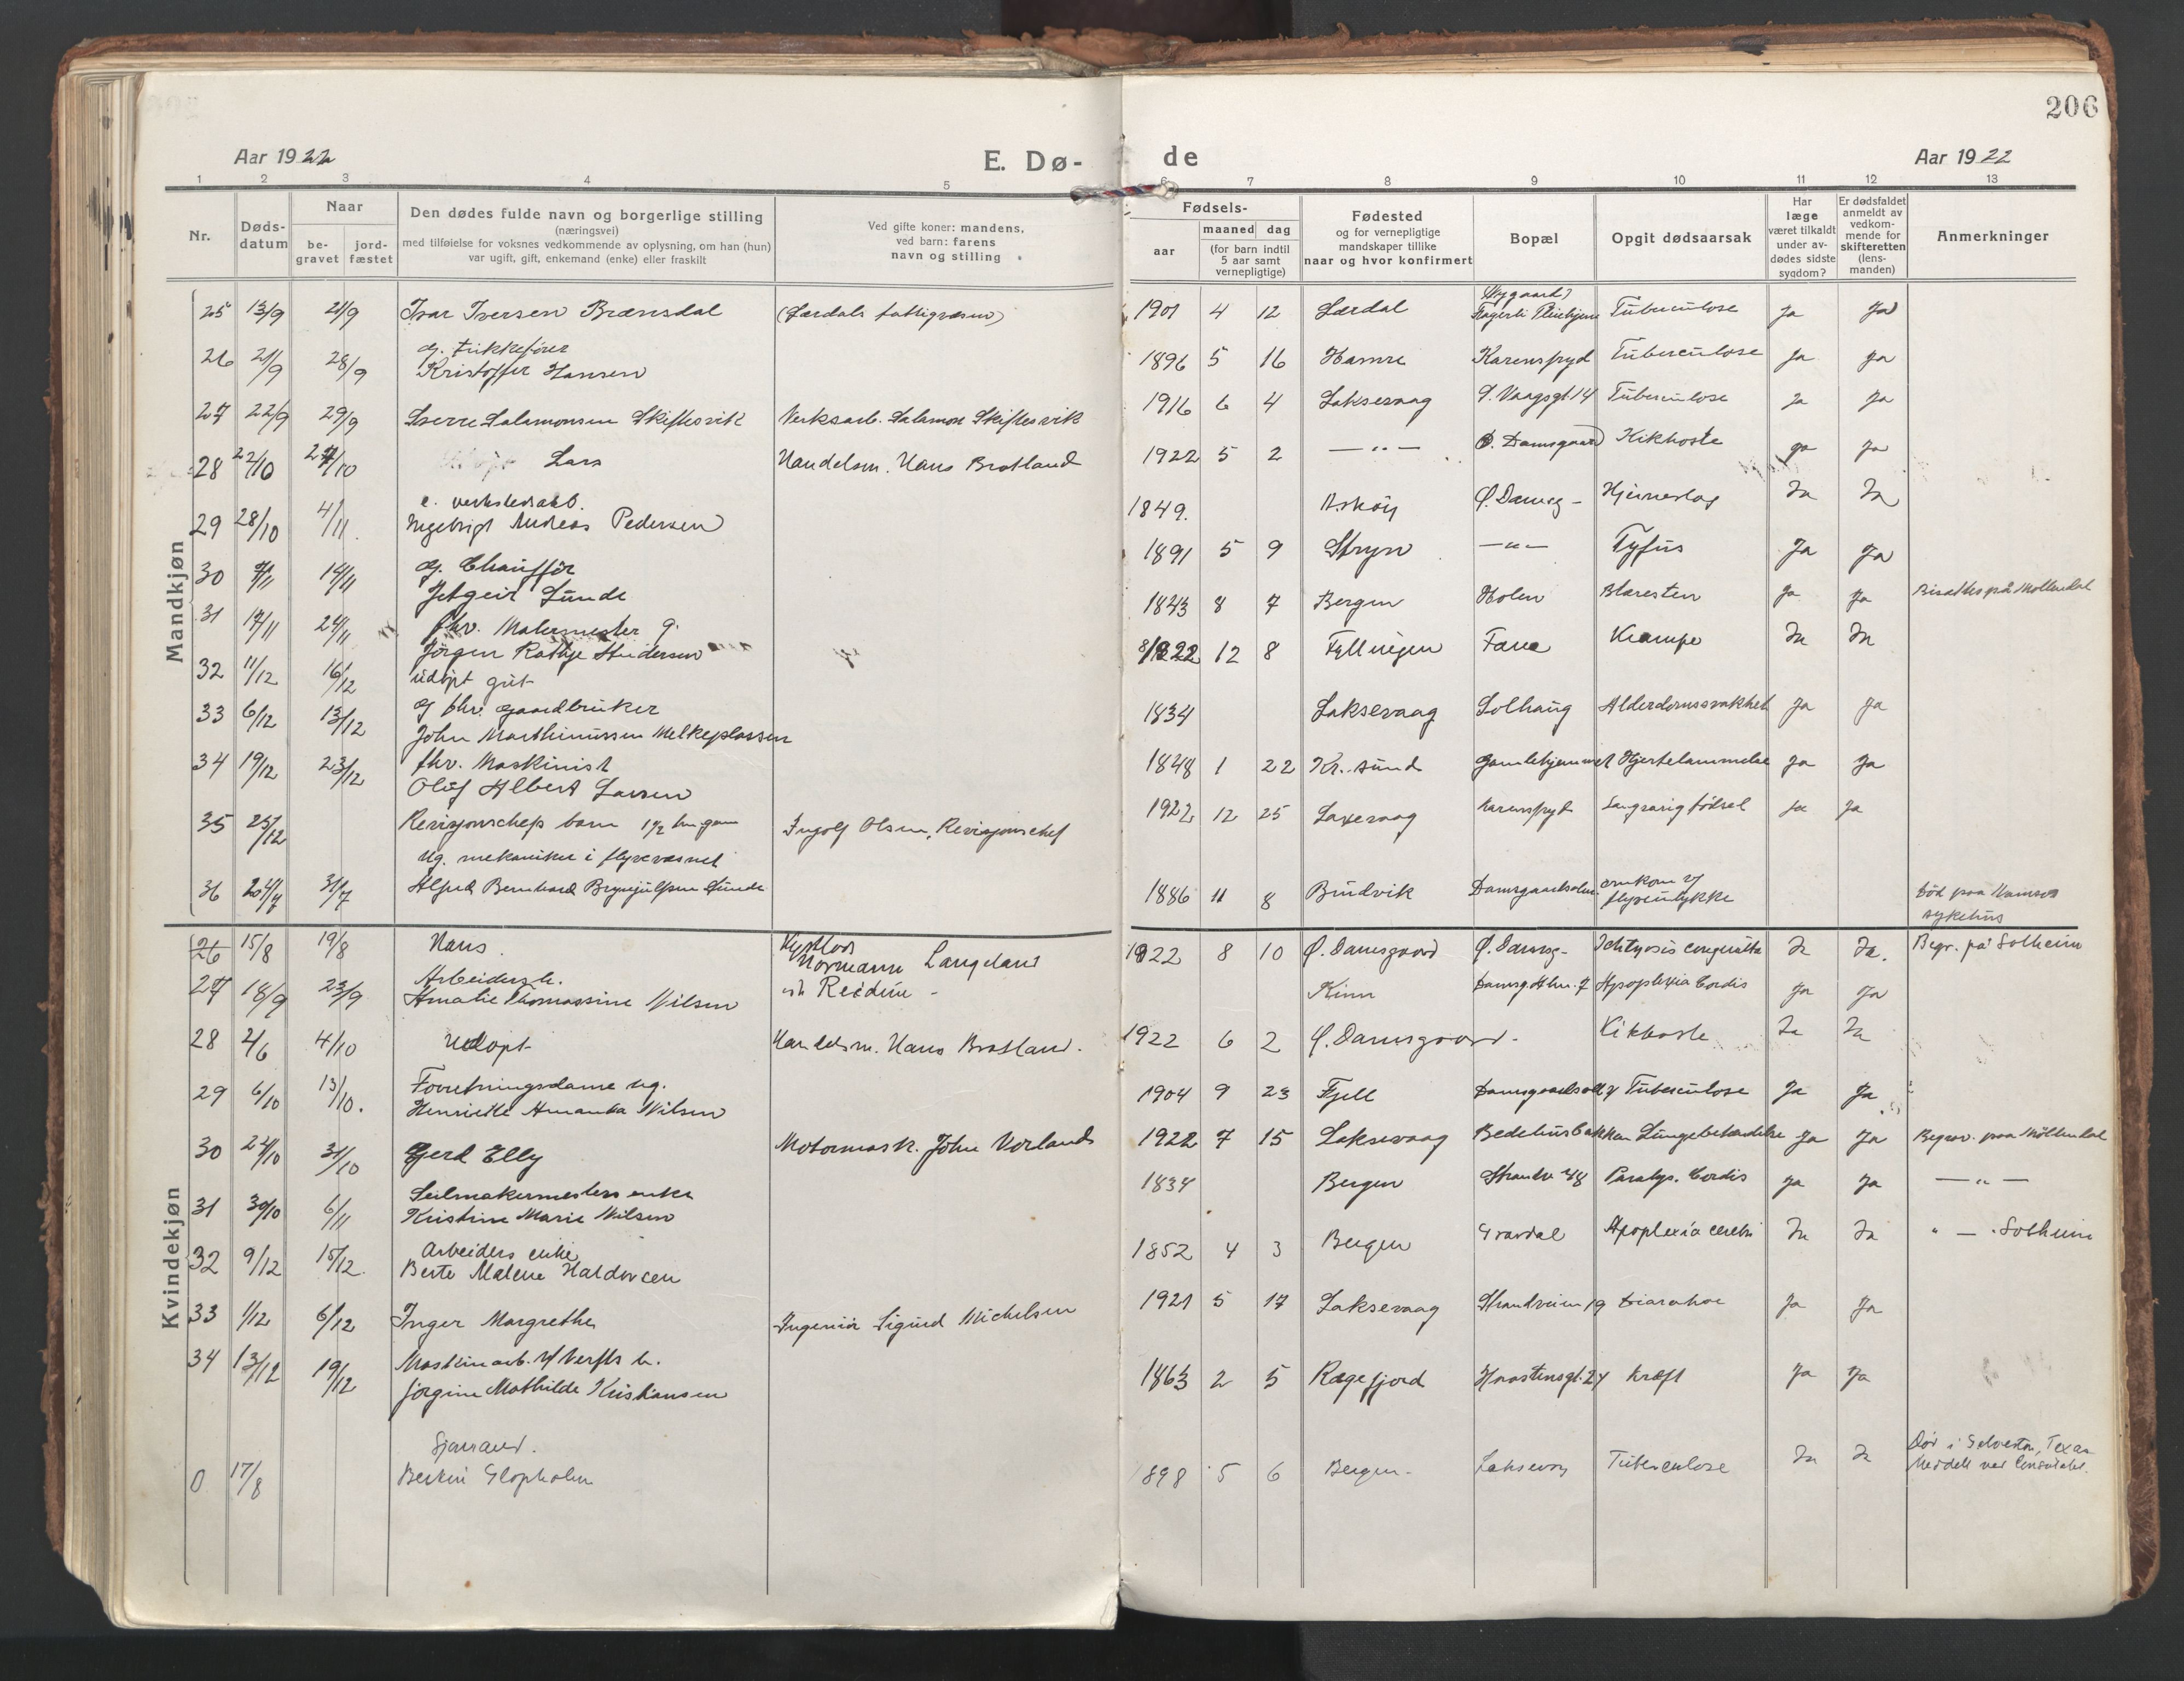 206
Aar 1922
E. Dø-
de
Aar 1922
1 2 3 4 5 6 7 8 9 10 11 12 13
Nr.
Døds-
datum
Naar
be-
gravet
jord-
fæstet
Den dødes fulde navn og borgerlige stilling
(næringsvei)
med tilføielse for voksnes vedkommende av oplysning, om han (hun)
var ugift, gift, enkemand (enke) eller fraskilt
Ved gifte koner: mandens,
ved barn: farens
navn og stilling
Fødsels-
aar
maaned
dag
(for barn indtil
5 aar samt
vernepligtige)
Fødested
og for vernepligtige
mandskaper tillike
naar og hvor konfirmert
Bopæl
Opgit dødsaarsak
Har
læge
været tilkaldt
under av-
dødes sidste
sygdom?
Er dødsfaldet
anmeldt av
vedkom-
mende for
skifteretten
(lens-
manden)
Anmerkninger
Mandkjøn
25 13/9 21/9 Ivar Iversen Brænsdal (Lærdals fattigvæsen) 1901 4 12 Lærdal Tuberculose Ja Ja
26 21/9 28/9 Kristoffer Hansen 1896 5 16 Hamre Karenspyd Tuberculose Ja Ja
27 22/9 29/9 Sverre Salamonsen Skiftesvik Verksarb. Salamon Skiftesvik 1916 6 4 Laksevaag S. Vaagsgt. 14 Tuberculose Ja Ja
28 22/10 27/10 Lars Handelsm. Hans Brotland 1922 5 2 — „ — Ø. Damsgaard Kikhoste Ja Ja
e. verkstedsarb.
29 28/10 4/11 Ingebrigt Andreas Pedersen 1849. Askøy Ø. Damsg- Hjerneslag Ja Ja
30 7/11 14/11 g. Chauffør 1891 5 9 Stryn — „ — Tyfus Ja Ja
Jetgeir Lunde
31 17/11 24/11 fhv. Malermester g. 1843 8 7 Bergen Holen Blæresten Ja Ja Bisattes på Møllendal
Jörgen Rathje Andersen
32 11/12 16/12 udöpt gut 1922 12 8 Fyllingen Fana Krampe Ja Ja
33 6/12 13/12 g fhv. gaardbruker 1834 Laksevaag Solhaug Alderdomssvakhet Ja Ja
John Marthinussen Melkeplassen
34 19/12 23/12 fhv. Maskinist 1848 1 22 Kr. sund Gamlehjemmet Hjertelammelse Ja Ja
Oluf Albert Larsen
35 25/12 Revisjonschefs barn 1½ Ingolf Olsen, Revisjonschef 1922 12 25 Laxevaag Karenspyd Langvarig fødsel Ja Ja
Ug. mekaniker i flyvevæsnet
36 31/7 Alfred Bernhard Brynjulfsen Lunde 1886 11 8 Bruvik omkom v/
flyveulykke død paa
sykehus
Kvindekjøn
26 15/8 19/8 Hans. Normann Langeland 1922 8 10 Ø. Damsgaard Ø. Damsg- Ichtyosis congenita Ja Ja. Begr. på Solheim
Arbeidersh.
27 18/9 23/9 Amalie Thomassine Nilsen Kinn Apoplexia Cordis Ja Ja
28 2/6 4/10 Udøpt Handelsm. Hans Brotland. 1922 6 2 Ø. Damsgaard. Kikhoste Ja Ja
29 6/10 13/10. Forretningsdame ug. 1904 9 23 Fjell Tuberculose Ja Ja
Henriette Amanda Nilsen
30 24/10 31/10 Gerd Elly Motormask. John Vorland 1922 7 15 Laksevaag Bedehusbakken Lungebetændelse Ja Ja Begrav. paa Møllendal
Seilmakermesters enke
31 30/10 6/11 Kristine Marie Nilsen 1834 Bergen Strandv. 48 Paralys. Cordis Ja Ja — „ —
Arbeiders enke
32 9/12 15/12. Berte Malene Haldorsen 1852 4 3 Bergen Gravdal Apoplexia cerebri Ja Ja „ — . Solheim
33 1/12 6/12 Inger Margrethe Ingeniör Sigurd Michelsen 1921 5 17 Laksevaag Strandveien 19 Diarrhoe Ja Ja
34 13/12 19/12 Maskinarb. v/ Verfts h. 1863 2 5 Rægefjord Kræft Ja Ja
Jørgine Mathilde Kristiansen
Sjømand.
0 17/8 1898 5 6 Bergen - Laksevag Tuberculose Ja Ja Død i Galveston, Texas